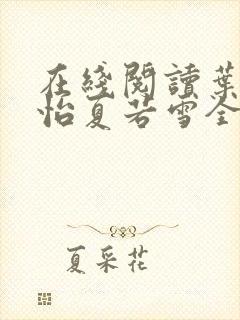 在綫閱讀葉
怡夏若雪全
夏采花